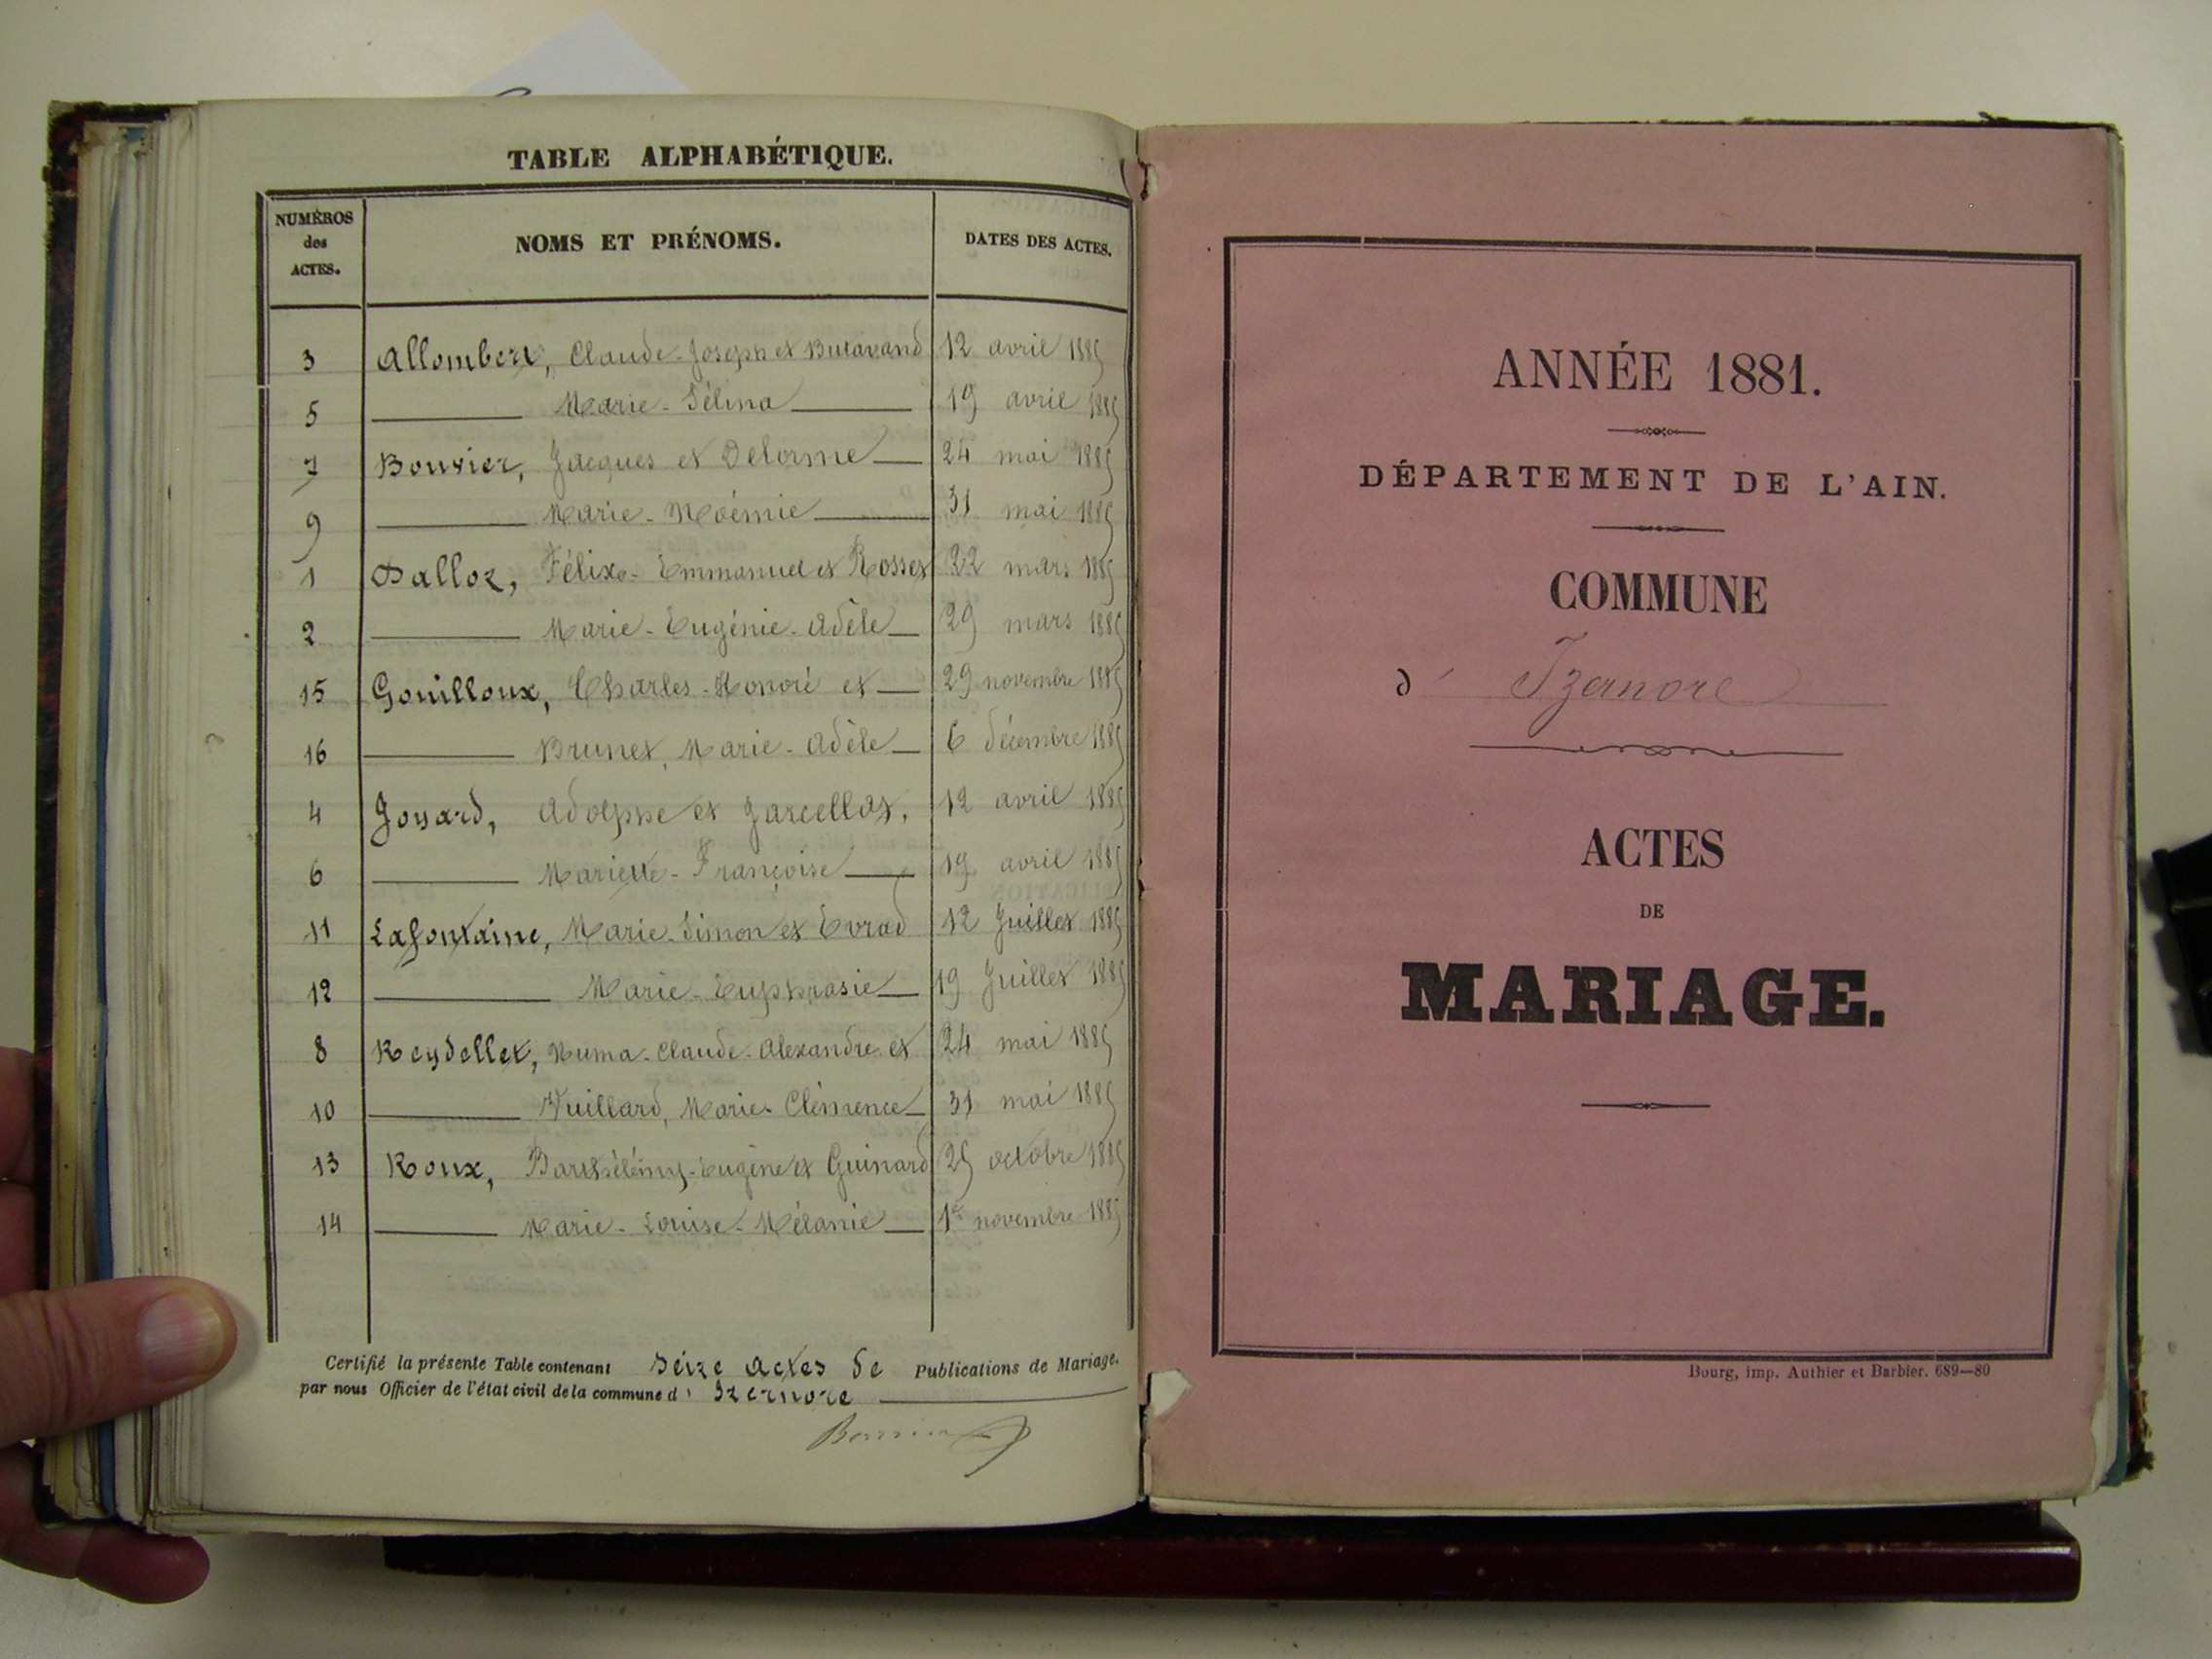 TABLE ALPHABÉTIQUE.
NUMÉROS
des
ACTES.
NOMS ET PRÉNOMS.
DATES DES ACTES.
3 Allombert, Claude-Joseph et Butavand 12 avril 1885
5 Marie-Sélina 19 avril 1885
7 Bouvier, Jacques et Delorme 24 mai 1885
9 Marie-Noémie 31 mai 1885
1 Dalloz, Félix-Emmanuel et Rosset 22 mars 1885
2 Marie-Eugénie-Adèle 29 mars 1885
15 Gouilloux, Charles-Honoré et 29 novembre 1885
16 Brunet, Marie-Adèle 6 décembre 1885
4 Joyard, Adolphe et Jarcellat, 12 avril 1885
6 Mariette-Françoise 19 avril 1885
11 Lafontaine, Marie-Simon et Evrad 12 Juillet 1885
12 Marie-Euphrasie 19 Juillet 1885
8 Reydellet, Numa-Claude-Alexandre et 24 mai 1885
10 Vuillard, Marie-Clémence 31 mai 1885
13 Roux, Barthélémy-Eugène et Guinard 25 octobre 1885
14 Marie-Louise-Mélanie 1er novembre 1885
Certifié la présente Table contenant Seize actes de Publications de Mariage.
par nous Officier de l'état civil de la commune d' Izernore
ANNÉE 1881.
DÉPARTEMENT DE L'AIN.
COMMUNE
d' Izernore
ACTES
DE
MARIAGE.
Bourg, imp. Authier et Barbier. 689—80